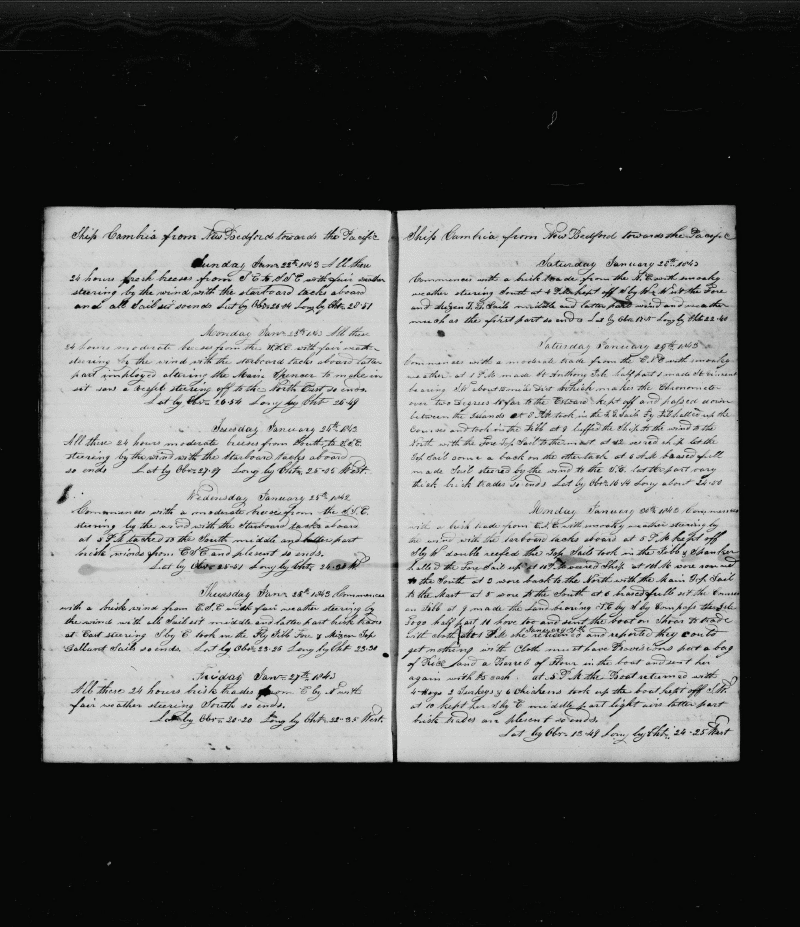 Ship Cambria from New Bedford towards the Pacific
Sunday Jan 22th 1843 All these
24 hours fresh breeses from S E to S S E with fair weather
steering by the wind with the starboard tacks aboard
and all Sail sit so ends Lat by Obr Long by Chr 28-51
Monday Jan 23th 1843 All these
24 hours moderate breeses from the with fair weather
steering by the wind with the starboard tacks aboard later
part imployed altering the Main Spencer to make in
sit steering off to the North East so ends
Lat by Obr 26-54 Long by Chr 26-49
Tuesday January 24th 1843
All these 24 hours moderate breeses from South to S.S.E.
steering by the wind with the Starboard tacks aboard
so ends Lat by Obr 27-07 Long by Chr 25-35 West
Wednesday January 25th 1843
Commences with a moderate breese from the S.S.E.
sterring by the wind with the Starboard tacks aboard
at 5 P.M tacked to the South middle and latter part
brisk winds from E S E and plesent so ends.
Lat by Obr 25-51 Long by Chr 24-30 W
Thuesday Jan 26th 1843 Commences
with a brisk wind from E.S.E with fair weather steering by
the wind with all Sail sit middle and latter part brisk trades
at East steering S by E took in the Fly Jibb Fore & Mizen Top
Gallant Sails so ends. Lat by Obr 23-25 Long by Chr 23-30
Friday Jan 27th 1843
All these 24 hours brisk trades from E by N with
fair weather steering South so ends.
Lat by Obr 20-20 Long by Chr 22-35 West.
Ship Cambria from New Bedford towards the Pacific
Saturday January 28th 1843
Commences with a brisk trade from the N.E with smoky
weather steering South at 4 P.M kept off S by W sit the Fore
and Mizen T.G. Sails middle and latter part wind and weather
much as the first part so ends Lat by Obr Long by Chr 22-40
Saturday January 29th 1843
Commences with a moderate trade from the E.N.E with smoky
weather at 1 P.M made St Anthony Isle half past 1 made St vincent
bearing SW about 20 miles Dist which makes the Chronometer
over two Degrees to far to the Estward kept off and passed down
between the Islands at 8 P.M took in the T.G Sails Fly Jib halled up the
Courses and took in the Jibb at 9 luffed the Ship to the wind to the
North with the Fore Top Sail to the mast at 12 wered ship let the
Top Sail come a back on the other tack at 5 A.M brased full
made Sail steered by the wind to the S.E. latter part very
thick brisk trades so ends Lat by Obr 16-14 Long about 24-50
Monday January 30th 1843 Commences
with a brisk trade from E.N.E with smoky weather steering by
the wind with the larboard tacks aboard at 5 P.M kept off
S by W double reefed the Top Sails took in the Jibb & Spanker
halled the Fore Sail up at 10 P.M wared Ship at 12 M wore round
to the South at 2 wore back to the North with the Main Top Sail
to the Mast at 5 wore to the South at 6 brased full sit the Courses
and Jibb at 9 made the Land bearing S E by S by Compass the Isle
Fogo half past 10 hove too and sent the boat on Shore to trade
with cloth
January 31th
at 1 P.M she returned and reported they could
get nothing with Cloth must have Provisions put a bag
of Rice and a Barrel of Flour in the boat and sent her
again with $5 cash at 5 P.M the Boat returned with
4 Hogs 2 Turkeys & 6 Chickens took up the boat kept off S.W.
at 10 kept her S by E middle part light airs latter part
brisk trades and plesent so ends.
Lat by Obr 13-49 Long by Chr 24-25 West